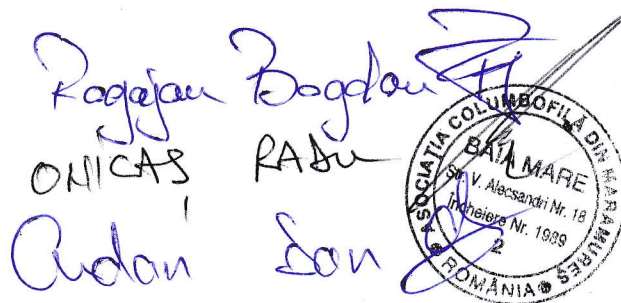 Rogojan Bogdan
ONICAS RADU
Ardan Dan
ASOCIAȚIA COLUMBOFILĂ DIN MARAMUREȘ
BAIA MARE
Str. V. Alecsandri Nr. 18
Încheiere Nr. 1989
2
ROMÂNIA